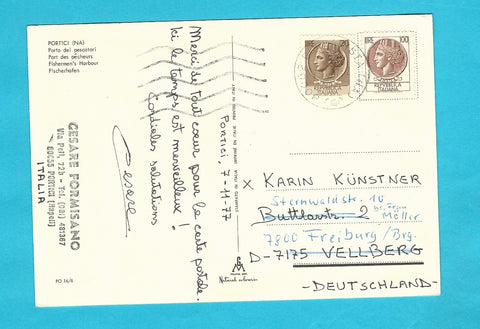 PORTICI (NA)
Porto dei pescatori
Port des pêcheurs
Fishermen's Harbour
Fischerhafen
CESARE FORMISANO
Via Poli, 72b - Tel. (081) 481367
80055 PORTICI (Napoli)
ITALIA
PO 16/6
Portici, 7-11-77
Merci de tout cœur pour la carte postale.
Ici le temps est merveilleux!
Cordiales salutations
Cesare
Natural colours
LIRE 100
REPUBBLICA
ITALIANA
x KARIN KÜNSTNER
Sternwaldstr. 10
Buttlarstr. 2 bei Möller
7800 Freiburg/Brg.
D-7175 VELLBERG
-DEUTSCHLAND-